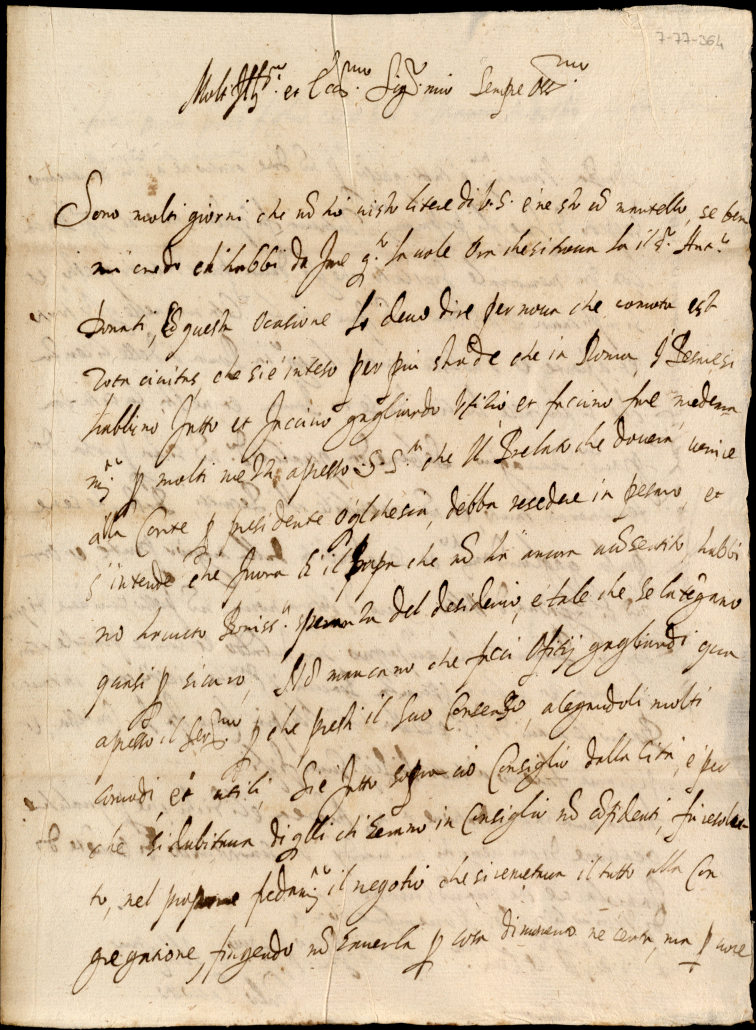 7-77-364
Molt Ill.re et Ecc.mo Sig.r mio sempre Oss.mo
Sono molti giorni che nõ hò visto littere di V.S. e ne stò cõ martello, se ben
mi credo ch'habbi da fare
Donati, cõ questa ocasione li devo dire per nova che comota est
tota civitas che si è inteso per più strade che in Roma i Pesaresi
habbino fatto et faccino gagliardo ufitio et faccino fare medema
p molti medii apresso S.S.tà che il Prelato che doverà venire
alla Corte p presidente debba resedere in pesaro, et
s'intende che fuora il papa che nõ hà ancora acõsentito, habbi
no havuto boniss.a speranza del desiderio, e tale che se la tẽgano
quasi p sicuro, Nõ mancano che facci Ofitij gagliardi qua
apresso il Ser.mo p che presti il suo consenso, alegandoli molti
comodi et utili, Si è fatto sopra ciò Consiglio dalla Cità, e per
che si dubitava di qlli ch'erano in Consiglio nõ cõfidenti, fu resolu
to, nel propore il negotio che si remeteva il tutto alla Con
gregatione, fingendo nõ haverla p cosa di momento ne certa, ma p